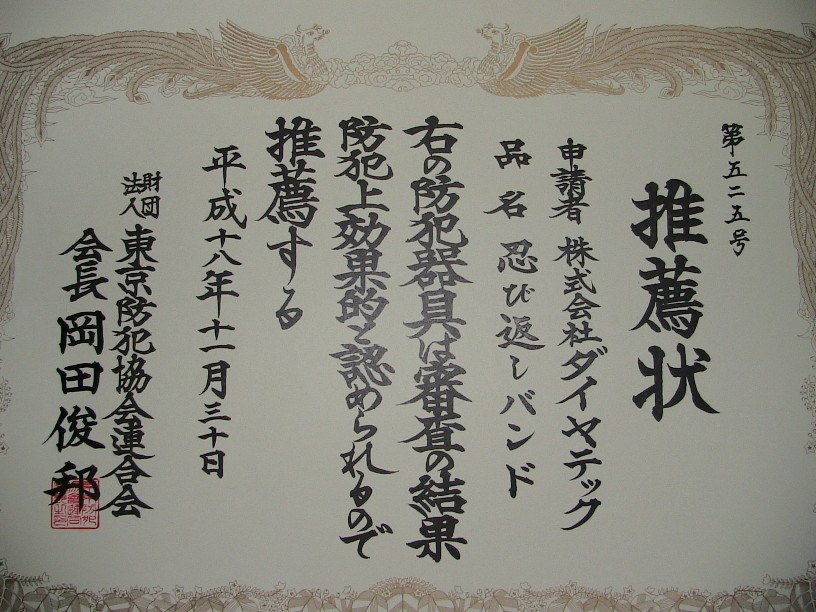 第五二五号
推薦状
申請者 株式会社ダイヤテック
品名 忍び返しバンド
右の防犯器具は審査の結果
防犯上効果的と認められるので
推薦する
平成十八年十一月三十日
財団法人 東京防犯協会連合会
会長 岡田俊邦